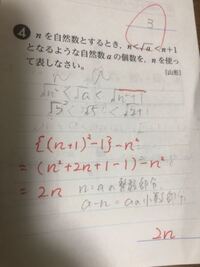 3
4 nを自然数とするとき，n<√a<n+1
となるような自然数aの個数を，nを使っ
て表しなさい。 [山形]
√n² < √a < √n²+1
{(n+1)²-1}-n²
= (n²+2n+1-1)-n²
= 2n n=aの整数部分
a-n=aの小数部分
2n